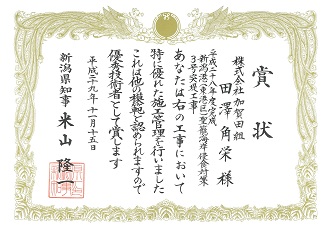 賞状
株式会社 加賀田組
田澤角栄様
平成二十八年度完成
新潟港(東港区)聖籠海岸侵食対策
3号突堤工事
あなたは右の工事において
特に優れた施工管理を行いました
これは他の模範と認められますので
優秀技術者として賞します
平成二十九年十一月十五日
新潟県知事 米山隆一